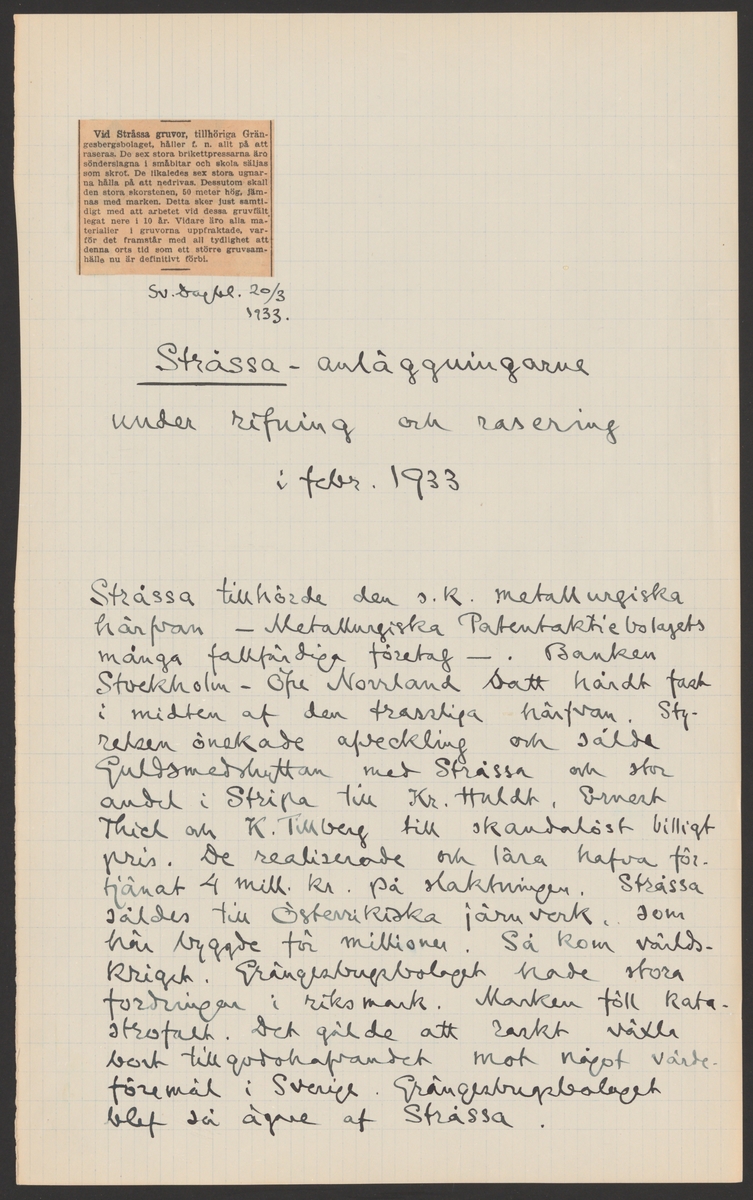 Vid Stråssa gruvor, tillhöriga Grän-
gesbergsbolaget, håller f. n. allt på att
raseras. De sex stora brikettpressarna äro
sönderslagna i småbitar och skola säljas
som skrot. De likaledes sex stora ugnar-
na hålla på att nedrivas. Dessutom skall
den stora skorstenen, 50 meter hög, jäm-
nas med marken. Detta sker just samti-
digt med att arbetet vid dessa gruvfält
legat nere i 10 år. Vidare äro alla ma-
terialier i gruvorna uppfraktade, var-
för det framstår med all tydlighet att
denna orts tid som ett större gruvsam-
hälle nu är definitivt förbi.
Sv. Dagbl. 20/3
1933.
Stråssa - anläggningarne
under rifning och rasering
i febr. 1933
Stråssa tillhörde den s.k. metallurgiska
härfvan — Metallurgiska Patentaktiebolagets
många fallfärdiga företag — . Banken
Stockholm - Öfre Norrland satt hårdt fast
i midten af den trassliga härfvan. Sty-
relsen önskade afveckling och sålde
Guldsmedshyttan med Stråssa och stor
andel i Stripa till Kr. Huldt, Ernest
Thiel och K. Tillberg till skandalöst billigt
pris. De realiserade och lära hafva för-
tjänat 4 mill. kr. på slaktningen. Stråssa
såldes till Österrikiska järnverk, som
här byggde för millioner. Så kom världs-
kriget. Grängesbergsbolaget hade stora
fordringar i riksmark. Marken föll kata-
strofalt. Det gälde att raskt växla
bort tillgodohafvandet mot något värde-
föremål i Sverige. Grängesbergsbolaget
blef så ägare af Stråssa.